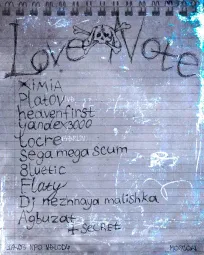 Love Vote
ximia
Platov
heavenfirst
yandex3000
Locre
segamegascum
Bluetic
Flaty
Dj neznnaya malishka
Agbuzat
+ secret